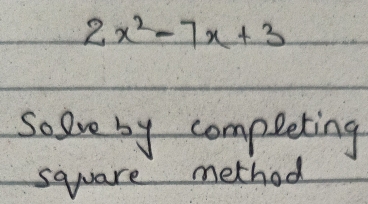 2x²-7x+3
Solve by completing
square method